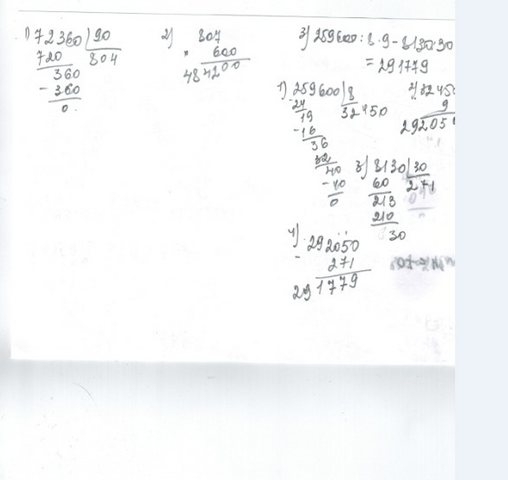 1) 72360 | 90
720 804
360
- 360
0.
2) 807
× 600
484200
3) 259600 : 8 · 9 - 8130 : 30
= 291779
1) 259600 | 8
24 32450
19
- 16
36
32
40
- 40
0
2) 32450
9
292050
3) 8130 | 30
60 271
213
210
30
4) 292050
- 271
291779